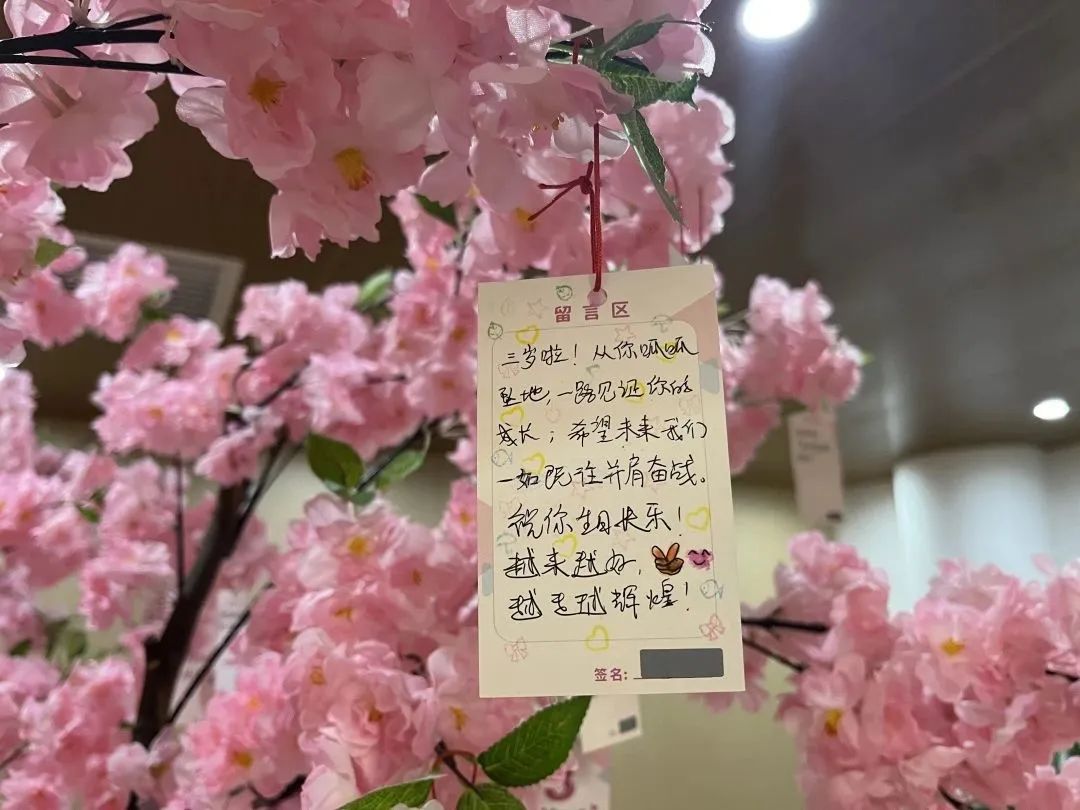 留言区
三岁啦！从你呱呱
坠地，一路见证你的
成长；希望未来我们
一如既往并肩奋战。
祝你生日快乐！
越来越好，
越走越辉煌！
签名：